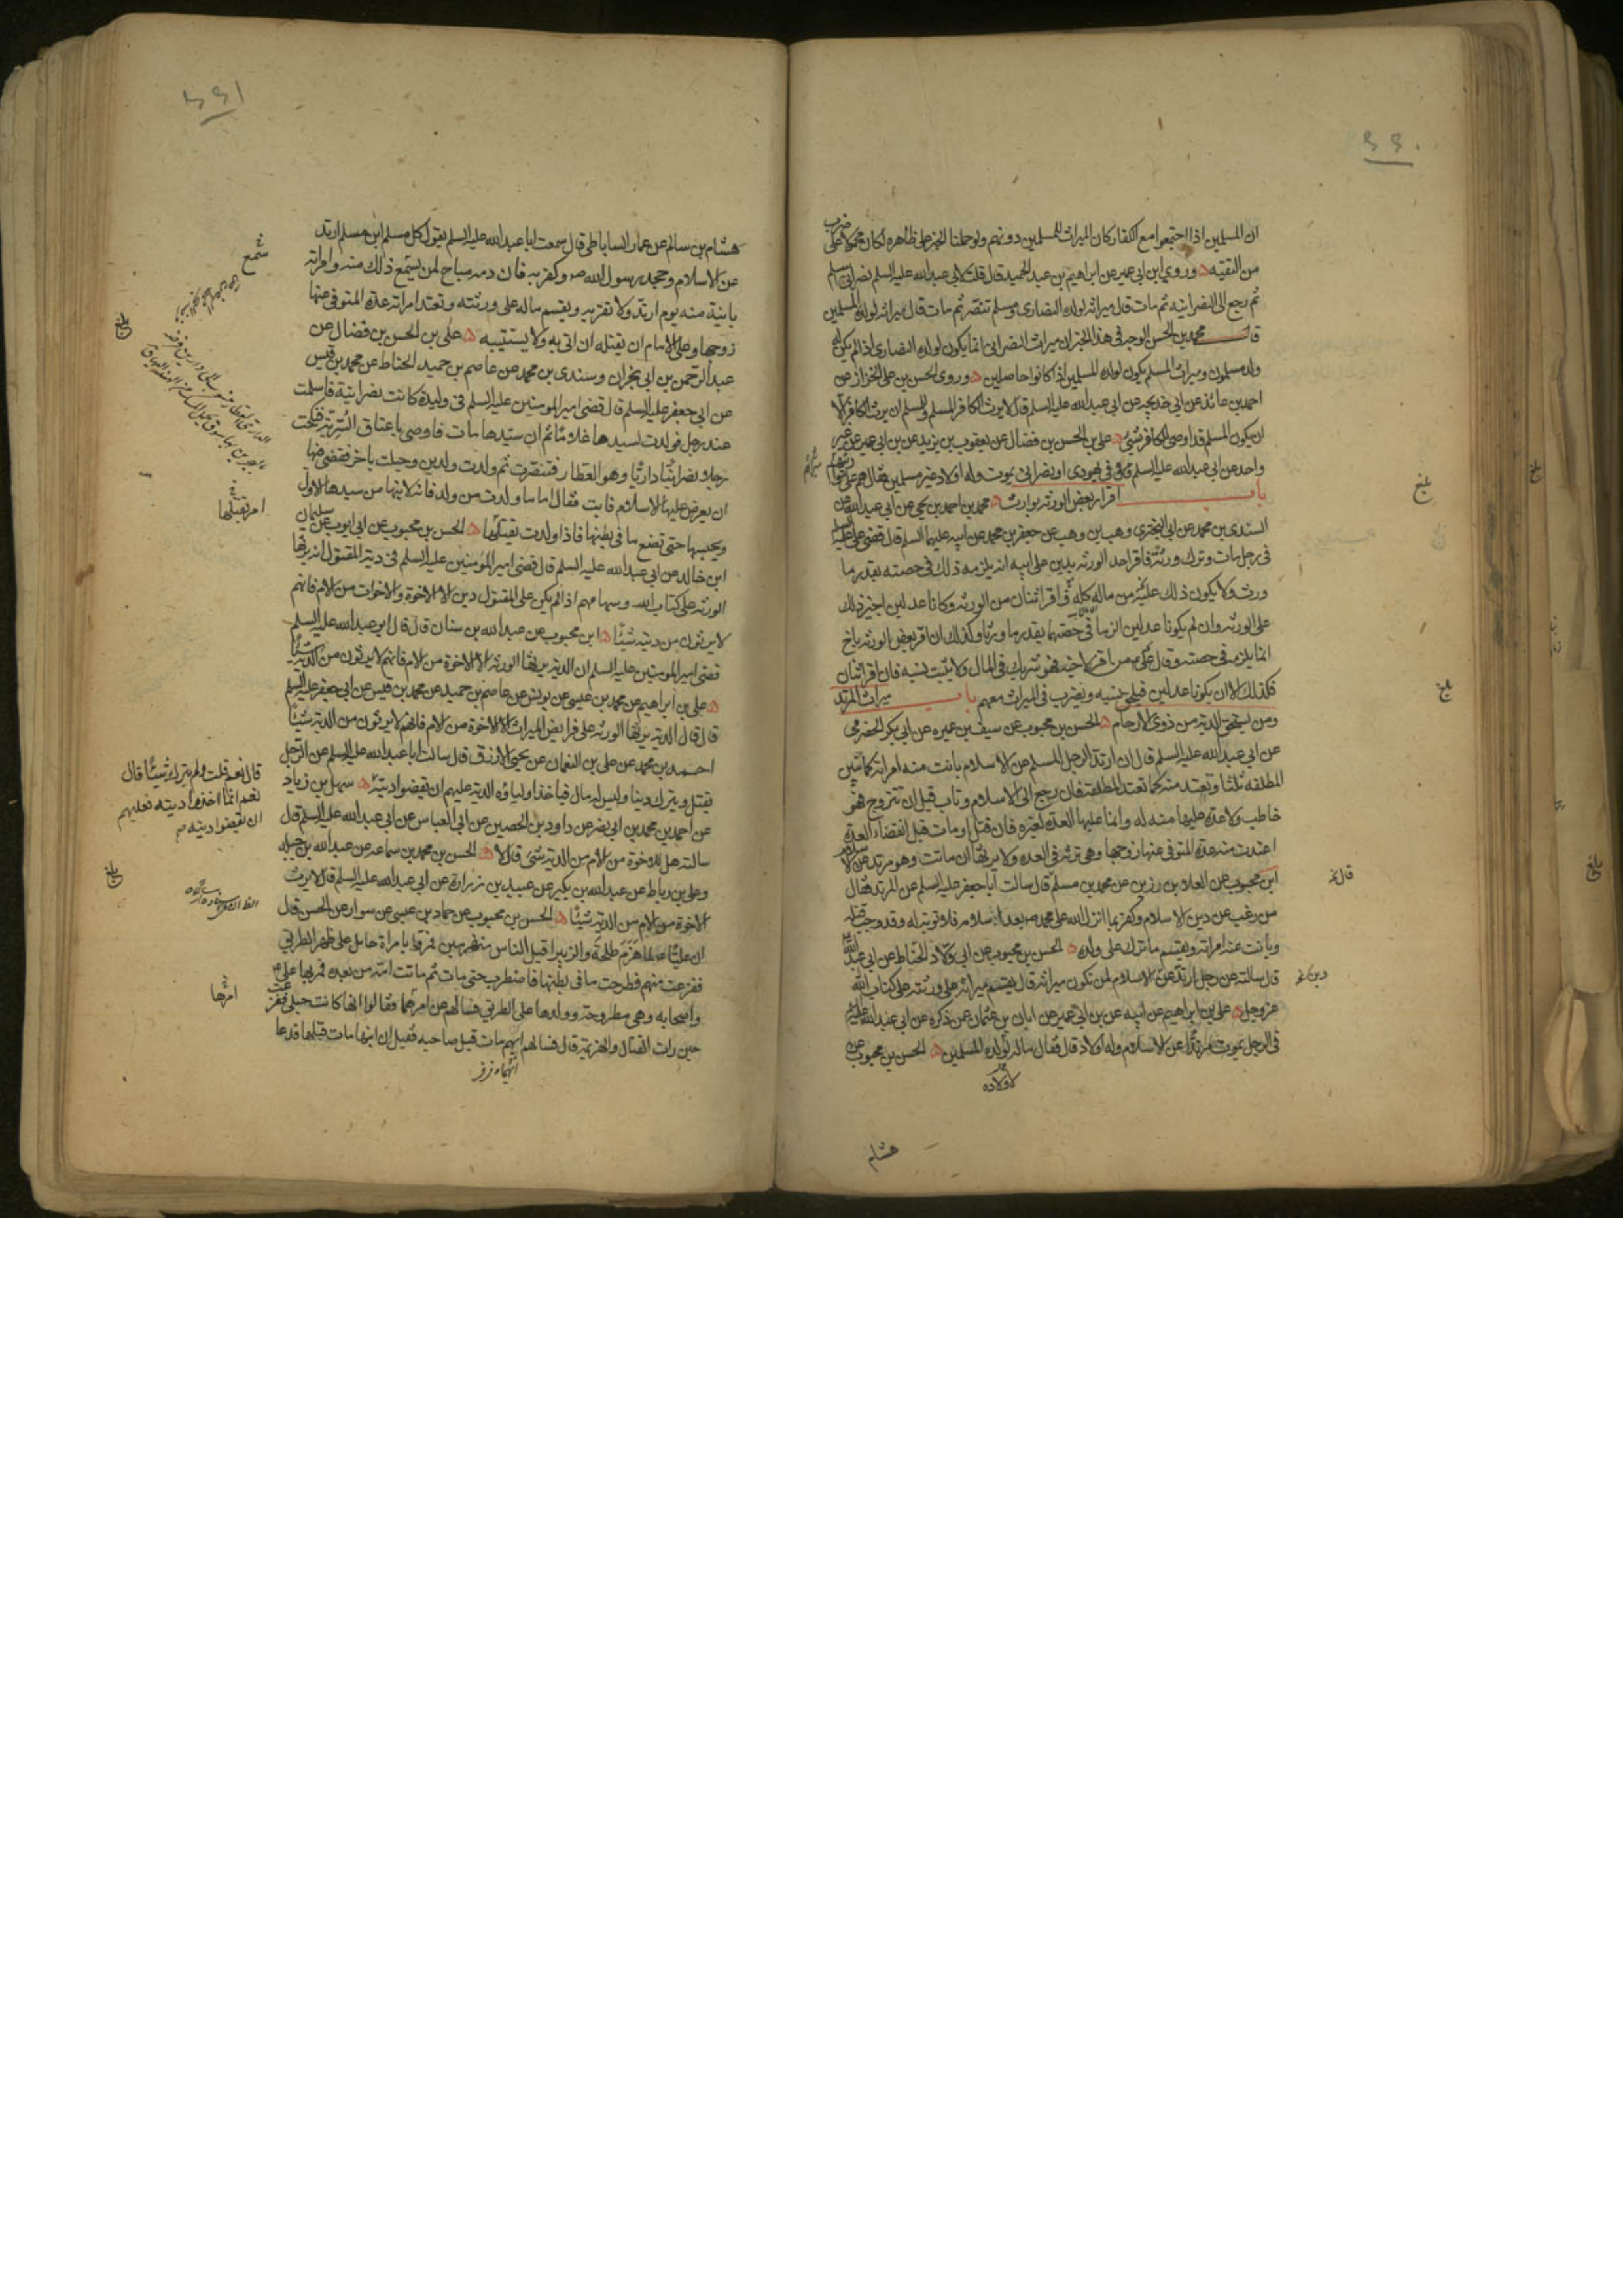 ٦٦٠
ان المسلمين اذا اجتمعوا مع الكفار كان الميراث للمسلمين دونهم ولو حملنا الخبر على ظاهره لكان محمولا على ضرب
من التقيه وروى ابن ابي عمير عن ابراهيم بن عبد الحميد قال قلت لابي عبد الله عليه السلم نصراني اسلم
ثم رجع الى النصرانيه ثم مات قال ميراثه لولده النصارى ومسلم تنصر ثم مات قال ميراثه لولده المسلمين
قال محمد بن الحسن الوجه في هذا الخبر ان ميراث النصراني انما يكون لولده النصارى اذا لم يكن له
ولد مسلمون وميراث المسلم يكون لولده المسلمين اذا كانوا حاصلين وروى الحسن بن على الخزاز عن
احمد بن عائذ عن ابي خديجه عن ابي عبد الله عليه السلم قال لا يرث الكافر المسلم وللمسلم ان يرث الكافر الا
ان يكون المسلم قد اوصى للكافر بشئ على بن الحسن بن فضال عن يعقوب بن يزيد عن بن ابي عمير عن غير
واحد عن ابي عبد الله عليه السلم في يهودى او نصرانى يموت وله اولاد غير مسلمين فقال هم على مواريثهم
باب اقرار بعض الورثه بوارث محمد بن احمد بن يحيى عن ابي عبد الله عن
السندى بن محمد عن ابي البخترى وهب بن وهب عن جعفر بن محمد عن ابيه عليهما السلم قال قضى على عليه السلم
فى رجل مات وترك ورثة فاقر احد الورثه بدين على ابيه انه يلزمه ذلك في حصته بقدر ما
ورث ولا يكون ذلك عليه من ماله كله فان اقر اثنان من الورثه وكانا عدلين اجيز ذلك
على الورثه وان لم يكونا عدلين الزما في حصتهما بقدر ما ورثا وكذلك ان اقر بعض الورثه باخ
انما يلزمه في حصته وقال على من اقر لاخيه فهو شريك في المال ولا يثبت نسبه فان اقر اثنان
فكذلك الا ان يكونا عدلين فيلحق بنسبه ويضرب في الميراث معهم باب ميراث المرتد
ومن يستحق الديه من ذوى الارحام الحسن بن محبوب عن سيف بن عميره عن ابي بكر الحضرمي
عن ابي عبد الله عليه السلم قال ان ارتد الرجل المسلم عن الاسلام بانت منه امراته كما تبين
المطلقه ثلثا وتعتد منه كما تعتد المطلقه فان رجع الى الاسلام وتاب قبل ان تتزوج فهو
خاطب ولا عدة عليها منه له وانما عليها العدة لغيره فان قتل او مات قبل انقضاء العدة
اعتدت منه عدة المتوفى عنها زوجها وهى ترثه في العده ولا يرثها ان ماتت وهو مرتد عن الاسلام
ابن محبوب عن العلا بن رزين عن محمد بن مسلم قال سالت ابا جعفر عليه السلم عن المرتد فقال
من رغب عن دين الاسلام وكفر بما انزل الله على محمد بعد اسلامه فلا توبة له وقد وجب قتله
وبانت عنه امراته ويقسم ما ترك على ولده الحسن بن محبوب عن ابي ولاد الحناط عن ابي عبد الله
قال سالته عن رجل ارتد عن الاسلام لمن تكون ميراثه قال يقسم ميراثه على ورثته على كتاب الله
عز وجل على بن ابراهيم عن ابيه عن بن ابي عمير عن ابان بن عثمان عمن ذكره عن ابي عبد الله عليه السلم
في الرجل يموت مرتدا عن الاسلام وله اولاد قال فقال ماله لولده المسلمين الحسن بن محبوب عن
لاولاده
هشام
بلغ
بلغ
قال
دين
٦٦١
هشام بن سالم عن عمار الساباطى قال سمعت ابا عبد الله عليه السلم يقول كل مسلم ابن مسلم ارتد
عن الاسلام وجحد رسول الله صه وكفر به فان دمه مباح لمن يسمع ذلك منه وامراته
باينة منه يوم ارتد ولا تقربه ويقسم ماله على ورثته وتعتد امراته عدة المتوفى عنها
زوجها وعلى الامام ان يقتله ان اتى به ولا يستتيبه على بن الحسن بن فضال عن
عبد الرحمن بن ابي نجران وسندى بن محمد عن عاصم بن حميد الحناط عن محمد بن قيس
عن ابي جعفر عليه السلم قال قضى امير المومنين عليه السلم في وليدة كانت نصرانية فاسلمت
عند رجل فولدت لسيدها غلاما ثم ان سيدها مات فاوصى باعتاق السرية فنكحت
رجلا نصرانيا داريا وهو العطار فتنصرت ثم ولدت ولدين وحبلت باخر فقضى فيها
ان يعرض عليها الاسلام فابت فقال اما ما ولدت من ولد فانه لابنها من سيدها الاول
ويحبسها حتى تضع ما في بطنها فاذا ولدت يقتلها الحسن بن محبوب عن ابي ايوب عن سليمان
ابن خالد عن ابي عبد الله عليه السلم قال قضى امير المومنين عليه السلم في دية المقتول انه يرثها
الورثه على كتاب الله وسهامهم اذا لم يكن على المقتول دين الا الاخوة والاخوات من الام فانهم
لا يرثون من ديته شيئا ابن محبوب عن عبد الله بن سنان قال قال ابو عبد الله عليه السلم
قضى امير المومنين عليه السلم ان الديه يرثها الورثه الا الاخوة من الام فانهم لا يرثون من الدية شيئا
على بن ابراهيم عن محمد بن عيسى عن يونس عن عاصم بن حميد عن محمد بن قيس عن ابي جعفر عليه السلم
قال قال الديه يرثها الورثه على فرايض الميراث الا الاخوة من الام فانهم لا يرثون من الديه شيئا
احمد بن محمد عن على بن النعمان عن يحيى الازرق قال سالت ابا عبد الله عليه السلم عن الرجل
يقتل ويترك دينا وليس له مال فياخذ اولياؤه الديه عليهم ان يقضوا دينه سهل بن زياد
عن احمد بن محمد بن ابي نصر عن داود بن الحصين عن ابي العباس عن ابي عبد الله عليه السلم قال
سالته هل للاخوة من الام من الديه شئ قال لا الحسن بن محمد بن سماعه عن عبد الله بن جبله
وعلى بن رباط عن عبد الله بن بكير عن عبيد بن زرارة عن ابي عبد الله عليه السلم قال لا يرث
الاخوة من الام من الديه شيئا الحسن بن محبوب عن حماد بن عيسى عن سوار عن الحسن قال
ان عليا لما هزم طلحة والزبير اقبل الناس منهزمين فمروا بامراة حامل على ظهر الطريق
ففزعت منهم فطرحت ما فى بطنها فاضطرب حتى مات ثم ماتت امه من بعده فمر بها على
واصحابه وهى مطروحة وولدها على الطريق فسالهم عن امرها فقالوا انها كانت حبلى ففزعت
حين رات القتال والهزيمة قال فسالهم ايهم مات قبل صاحبه فقيل ان ابنها مات قبلها قدعا
سمع
بلغ
امر بقتلها
قال نعم قلت ولم يترك شيئا قال
نعم انما اخذوا ديته فعليهم
ان يقضوا دينه
بلغ
امرها